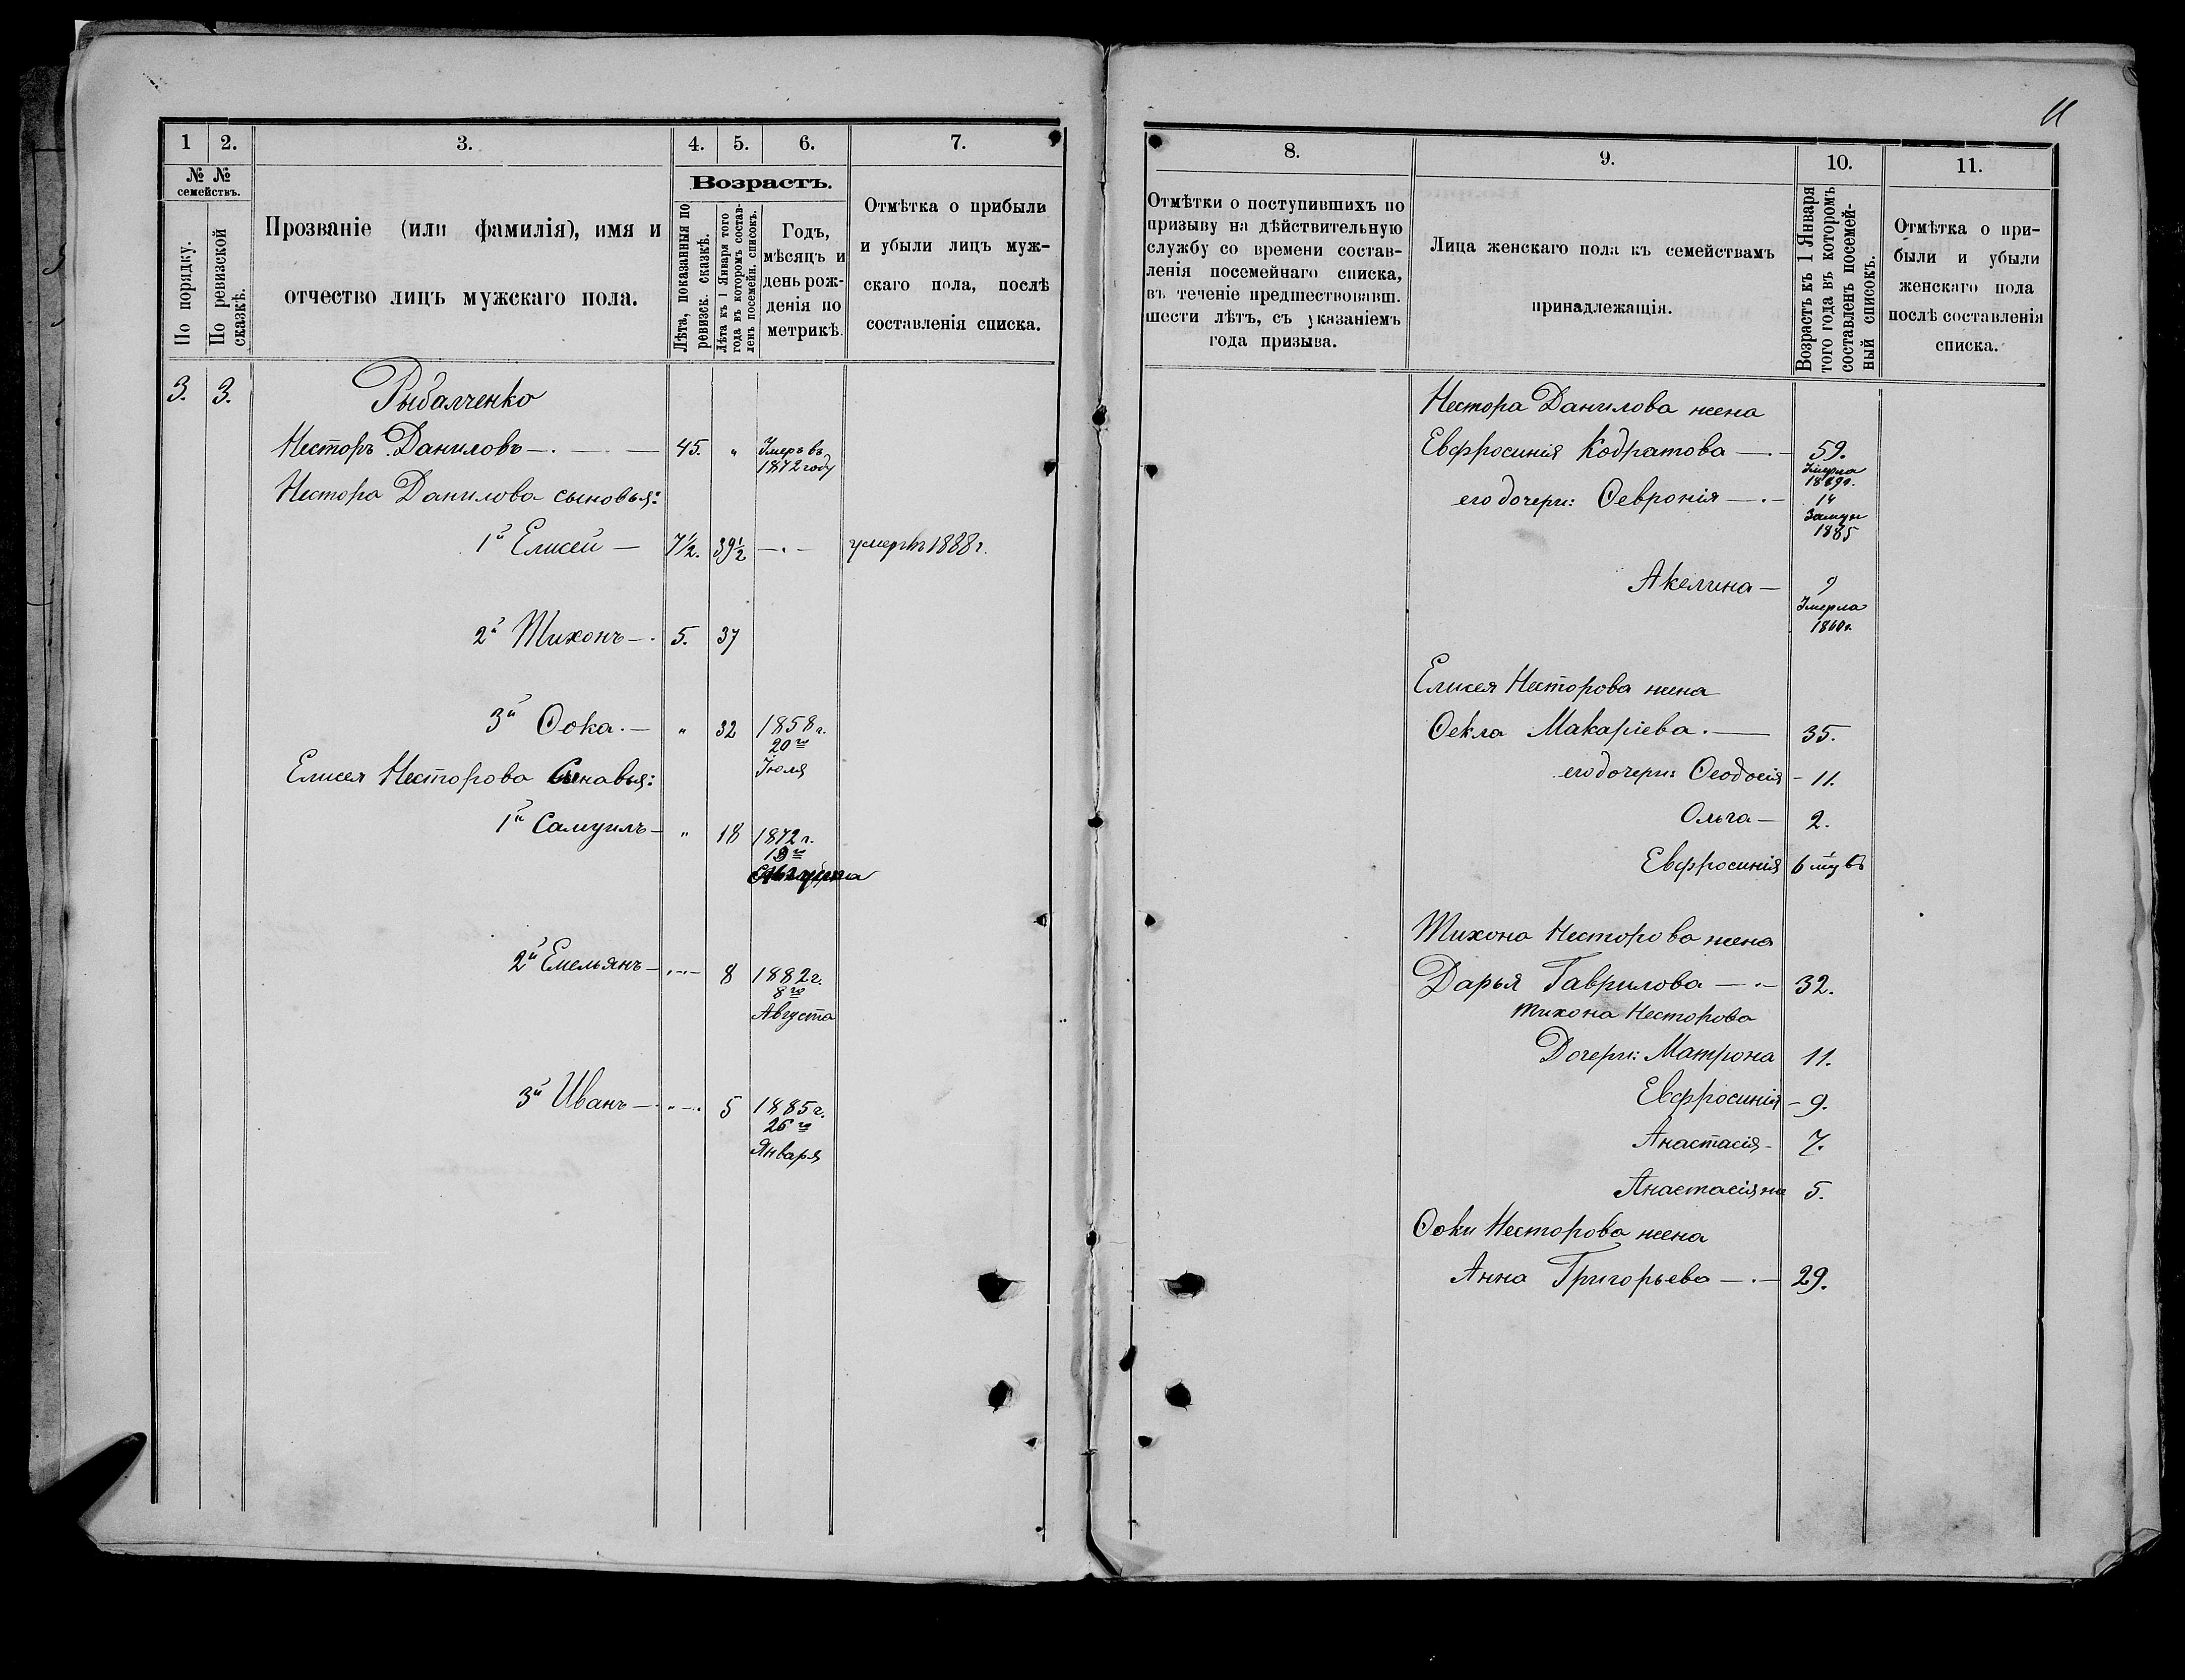 11
1 2. 3. 4. 5. 6. 7.
№ № семействъ.
По порядку.
По ревизской сказкѣ.
Прозваніе (или фамилія), имя и
отчество лицъ мужскаго пола.
Возрастъ.
Лѣта, показанныя по
ревизск. сказкѣ.
Лѣта къ 1 Января того
года въ которомъ состав-
ленъ посемейн. списокъ.
Годъ,
мѣсяцъ и
день рож-
денія по
метрикѣ.
Отмѣтка о прибыли
и убыли лицъ муж-
скаго пола, послѣ
составленія списка.
3. 3. Рыбалченко
Несторъ Даниловъ — 45. „ Умеръ въ
1872 году
Нестора Данилова сыновья:
1й Елисей — 7½. 39½ —.— умеръ 1888 г.
2й Тихонъ —. 5. 37
3й Ѳока.— „ 32 1858 г.
20го
Іюля
Елисея Несторова Сынавья:
1й Самуилъ — „ 18 1872 г.
2й Емельянъ — 8 1882 г.
8го
Августа
3й Иванъ — 5 1885 г.
26го
Января
8. 9. 10. 11.
Отмѣтки о поступившихъ по
призыву на дѣйствительную
службу со времени состав-
ленія посемейнаго списка,
въ теченіе предшествовавш.
шести лѣтъ, съ указаніемъ
года призыва.
Лица женскаго пола къ семействамъ
принадлежащія.
Возрастъ къ 1 Января
того года въ которомъ
составленъ посемей-
ный списокъ.
Отмѣтка о при-
были и убыли
женскаго пола
послѣ составленія
списка.
Нестора Данилова жена
Евфросинія Кодратова —.— 59.
Умерла
его дочери: Ѳевронія —.— 14
Замуж
1885
Акелина — 9
Умерла
1860 г.
Елисея Несторова жена
Ѳекла Макаріева. — 35.
его дочери: Ѳеодосія — 11.
Ольга — 2.
Евфросинія 6 мцъ
Тихона Несторова жена
Дарья Гаврилова —.— 32.
Тихона Несторова
Дочери: Матрона 11.
Евфросинія — 9.
Анастасія — 7.
Анастасія 5.
Ѳоки Несторова жена
Анна Григорьева —.— 29.